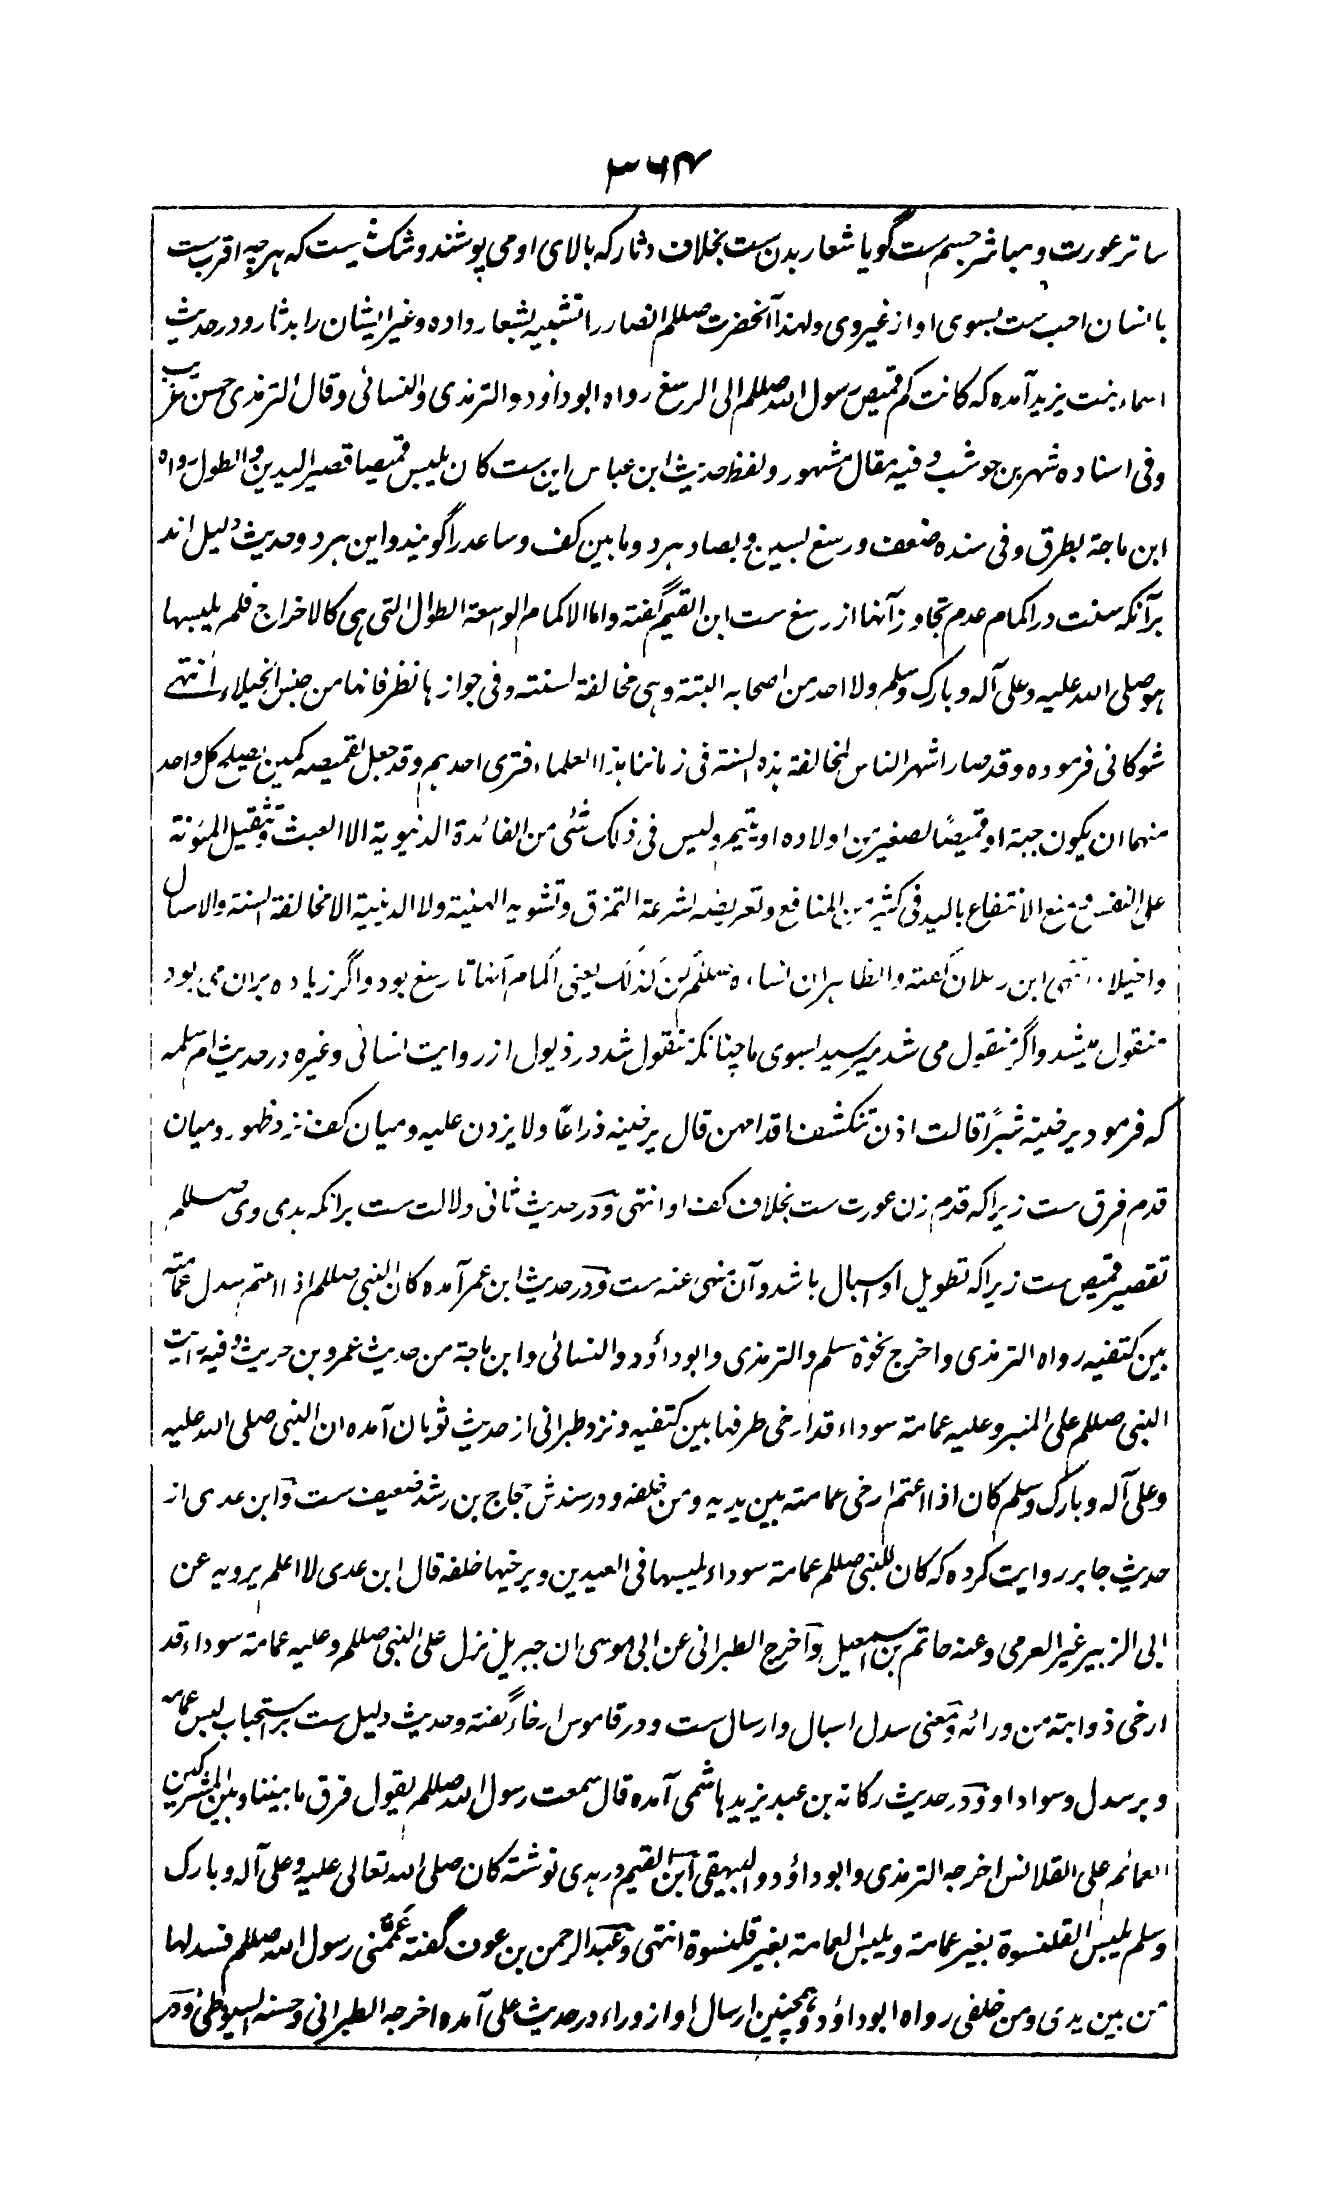 ۳۶۴
ساتر عورت و مباشر جسم ست گویا شعار بدن ست بخلاف دثار که بالای او می پوشند و شک نیست که هر چه اقرب ست
بانسان احب ست بسوی او از غیر وی و لهذا آنحضرت صللم انصار را تشبیه بشعار داده و غیر ایشان را بدثار و در حدیث
اسماء بنت یزید آمده که کانت کم قمیص رسول الله صللم الی الرسغ رواه ابو داؤد و الترمذی و النسائی و قال الترمذی حسن غریب
و فی اسناده شهر بن حوشب و فیه مقال مشهور و لفظ حدیث ابن عباس این ست کان یلبس قمیصا قصیر الیدین و الطول رواه
ابن ماجة بطرق و فی سنده ضعف و رسغ بسین و بصاد هر دو ما بین کف و ساعد را گویند و این هر دو حدیث دلیل اند
بر آنکه سنت در اکمام عدم تجاوز آنها از رسغ ست ابن القیم گفته و اما الاکمام الواسعة الطوال التی هی کالاخراج فلم یلبسها
هو صلی الله علیه و علی آله و بارک وسلم ولا احد من اصحابه البتة و هی مخالفة لسنته و فی جوازها نظر فانها من جنس الخیلاء انتهے
شوکانی فرموده و قد صار اشهر الناس لمخالفة هذه السنة فی زماننا هذا العلماء فتری احدهم و قد جعل لقمیصه کمین یصلح کل واحد
منهما ان یکون جبة او قمیصًا لصغیر من اولاده او یتیم و لیس فی ذلک شئی من الفائدة الدنیویة الا العبث و تثقیل المئونة
علی النفس و منع الانتفاع بالید فی کثیر من المنافع و تعریضه لسرعة التمزق و تشویه الهیئة ولا الدینیة الا مخالفة السنة والاسبال
و الخیلاء انتهی ابن رسلان گفته و الظاهر ان نساءه صللم کن کذلک یعنی اکمام آنها تا رسغ بود و اگر زیاده بران می بود
منقول میشد و اگر منقول می شد میرسید بسوی ما چنانکه منقول شد در ذیول از روایت نسائی و غیره در حدیث ام سلمه
که فرمود یرخینه شبرًا قالت اذن تنکشف اقدامهن قال یرخینه ذراعًا ولا یزدن علیه و میان کف نزد ظهور و میان
قدم فرق ست زیرا که قدم زن عورت ست بخلاف کف او انتهی و در حدیث ثانی دلالت ست برانکه هدی وی صللم
تقصیر قمیص ست زیرا که تطویل او اسبال باشد و آن منهی عنه ست و در حدیث ابن عمر آمده کان النبی صللم اذا اعتم سدل عمامته
بین کتفیه رواه الترمذی و اخرج نحوه مسلم و الترمذی و ابو داؤد و النسائی و ابن ماجة من حدیث عمرو بن حریث و فیه رایت
النبی صللم علی المنبر و علیه عمامة سوداء قد ارخی طرفها بین کتفیه و نزد طبرانی از حدیث ثوبان آمده ان النبی صلی الله علیه
و علی آله و بارک وسلم کان اذا اعتم ارخی عمامته بین یدیه و من خلفه و در سندش حجاج بن رشد ضعیف ست و ابن عدی از
حدیث جابر روایت کرده که کان للنبی صللم عمامة سوداء یلبسها فی العیدین و یرخیها خلفه قال ابن عدی لا اعلم یرویه عن
ابی الزبیر غیر العرمی و عنه حاتم بن اسمعیل و اخرج الطبرانی عن ابی موسی ان جبریل نزل علی النبی صللم و علیه عمامة سوداء قد
ارخی ذوابته من ورائه و معنی سدل اسبال و ارسال ست و در قاموس ارخاء گفته و حدیث دلیل ست بر استحباب لبس عمامه
و بر سدل و سواد او و در حدیث رکانه بن عبد یزید هاشمی آمده قال سمعت رسول الله صللم یقول فرق ما بیننا و بین المشرکین
العمائم علی القلانس اخرجه الترمذی و ابو داؤد و البیهقی ابن القیم در هدی نوشته کان صلی الله تعالی علیه و علی آله و بارک
وسلم یلبس القلنسوة بغیر عمامة و یلبس العمامة بغیر قلنسوة انتهی و عبد الرحمن بن عوف گفته عممنی رسول الله صللم فسدلها
من بین یدی و من خلفی رواه ابو داؤد و همچنین ارسال او از وراء در حدیث علی آمده اخرجه الطبرانی و حسنه السیوطی و در